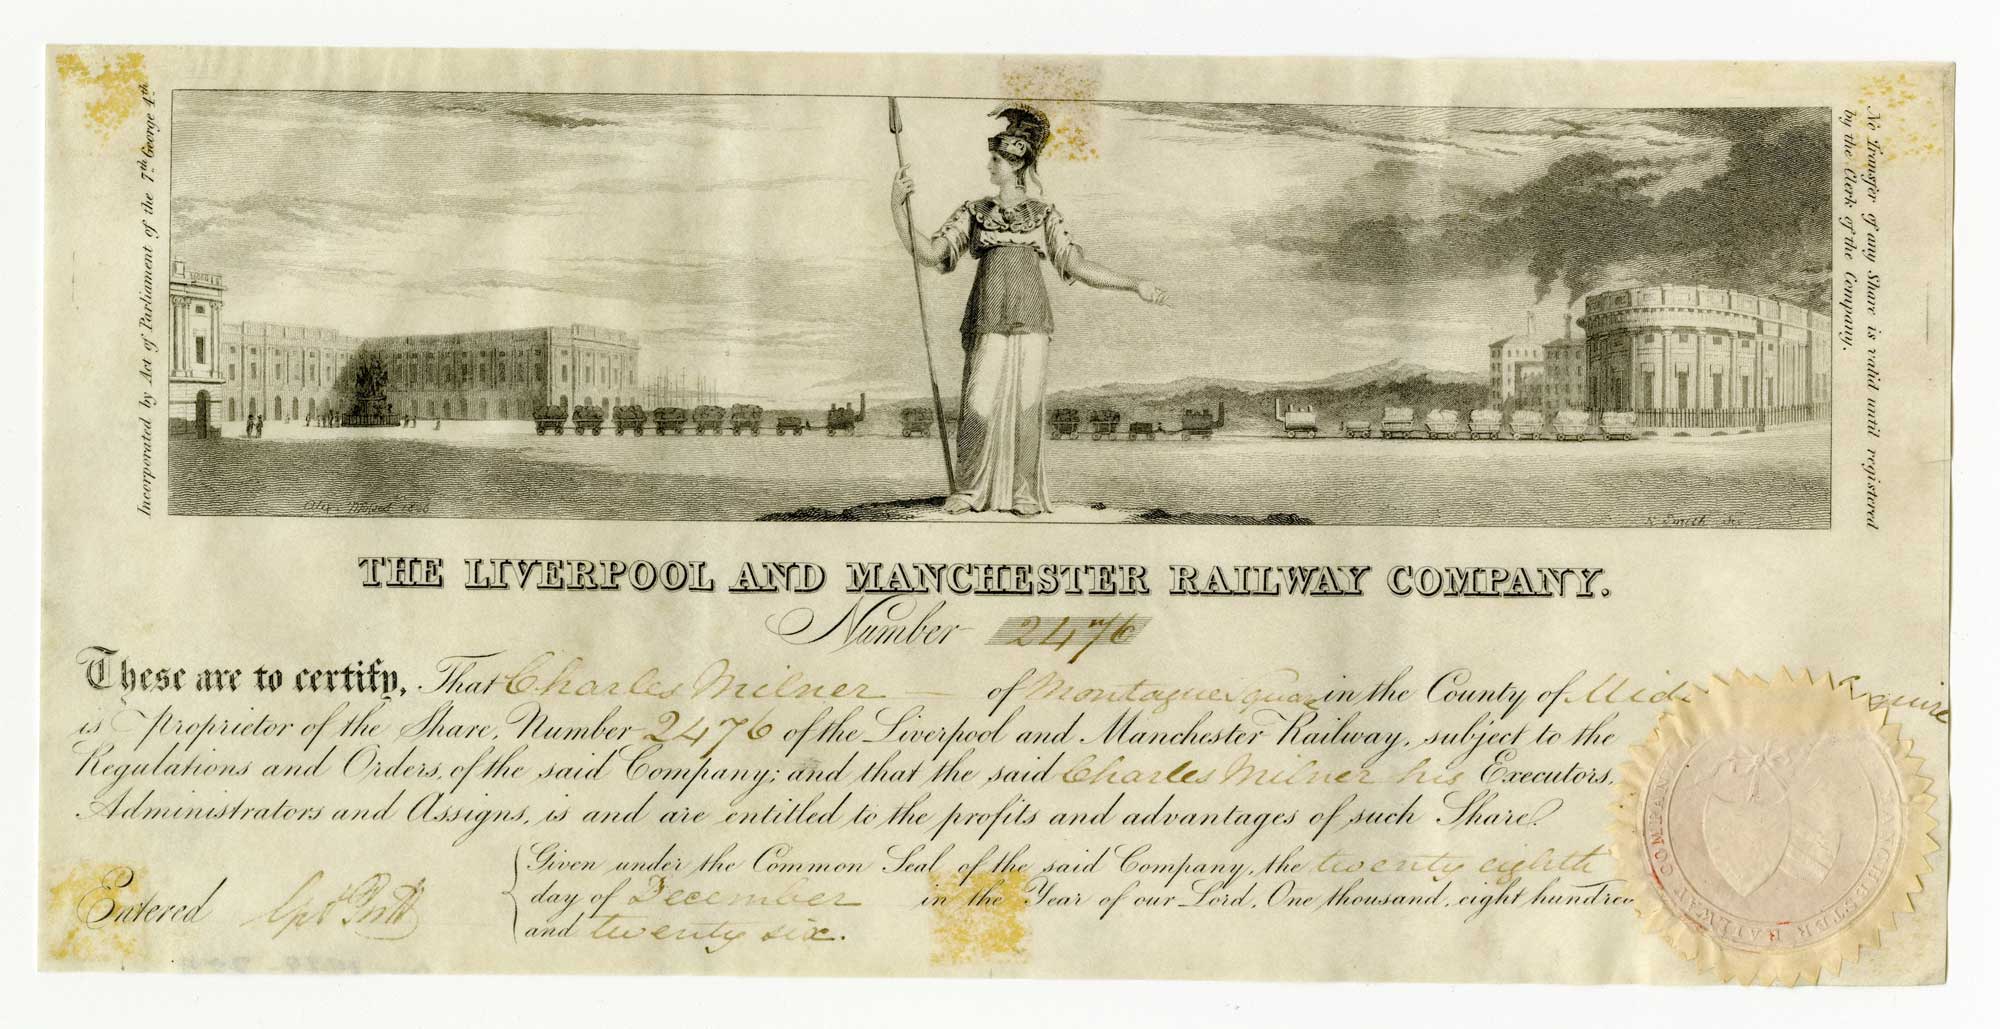 Incorporated by Act of Parliament of the 7th George 4th
No Transfer of any Share is valid until registered
by the Clerk of the Company.
1826
Smith
THE LIVERPOOL AND MANCHESTER RAILWAY COMPANY.
Number 2476
These are to certify, That Charles Milner of Montague Square in the County of Esquire
is Proprietor of the Share, Number 2476 of the Liverpool and Manchester Railway, subject to the
Regulations and Orders, of the said Company; and that the said Charles Milner his Executors,
Administrators and Assigns, is and are entitled to the profits and advantages of such Share.
Given under the Common Seal of the said Company, the twenty eighth
day of December in the Year of our Lord, One thousand, eight hundred
and twenty six.
Entered
MANCHESTER RAILWAY COMPANY